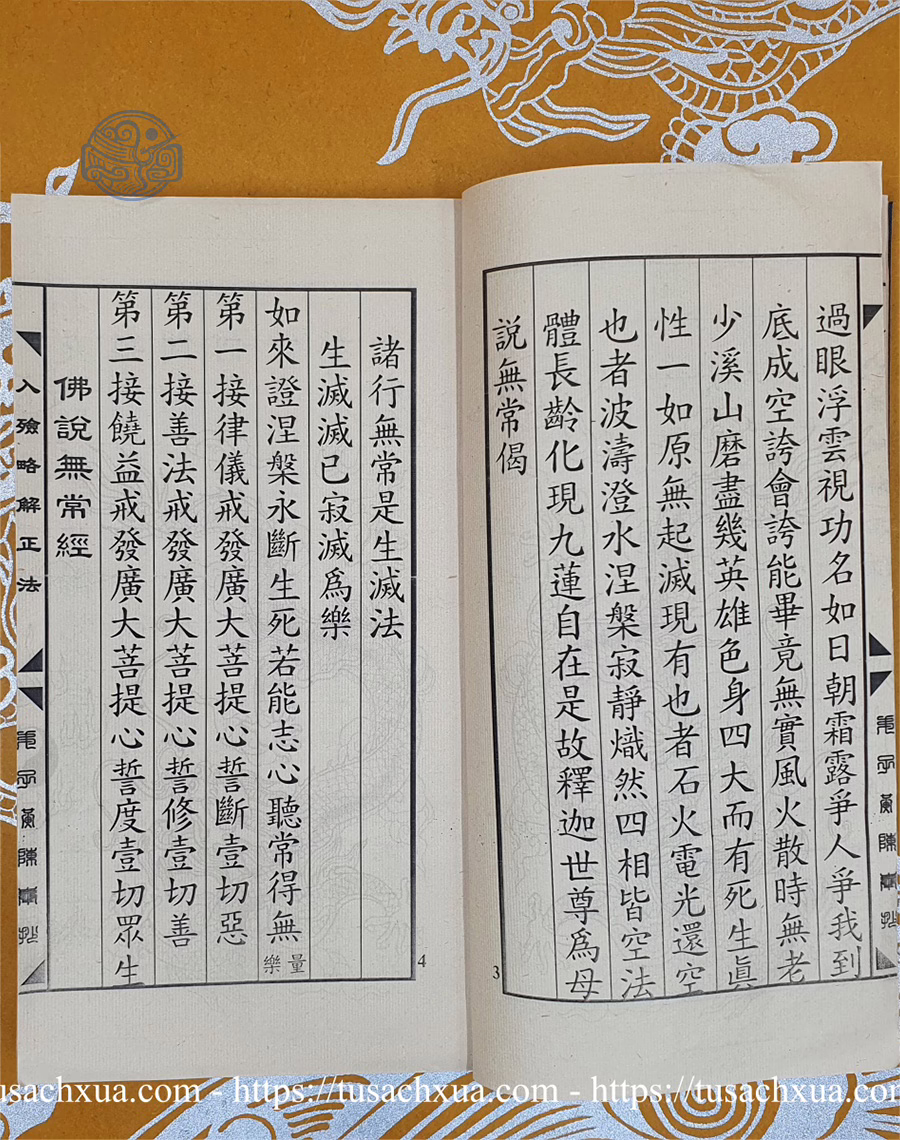 過眼浮雲視功名如日朝霜露爭人爭我到
底成空誇會誇能畢竟無實風火散時無老
少溪山磨盡幾英雄色身四大而有死生眞
性一如原無起滅現有也者石火電光還空
也者波濤澄水涅槃寂靜熾然四相皆空法
體長齡化現九蓮自在是故釋迦世尊爲母
説無常偈
3
諸行無常是生滅法
生滅滅已寂滅爲樂
如來證涅槃永斷生死若能志心聽常得無量樂
第一接律儀戒發廣大菩提心誓斷壹切惡
第二接善法戒發廣大菩提心誓修壹切善
第三接饒益戒發廣大菩提心誓度壹切眾生
佛說無常經
4
入殮略解正法
tusachxua.com - https://tusachxua.com - https://tusachxua.com